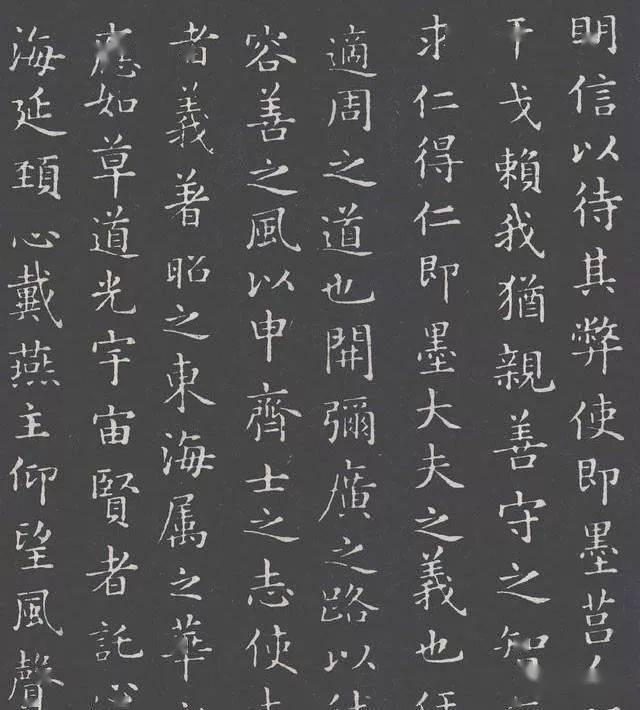 明信以待其弊使即墨莒人
干戈賴我猶親善守之智
求仁得仁即墨大夫之義也任
適周之道也開彌廣之路以待
容善之風以申齊士之志使夫
者義著昭之東海属之華
應如草道光宇宙賢者託心
海延頚心戴燕主仰望風聲